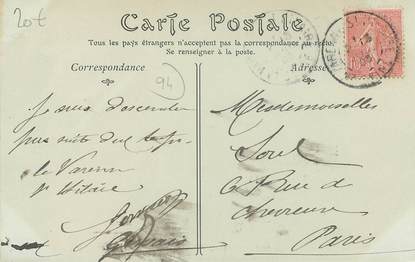 20€
Carte Postale
Tous les pays étrangers n'acceptent pas la correspondance au recto.
Se renseigner à la poste.
Correspondance
Adresse
94
Je suis descendu
pas suite du
la Varenne
St Hilaire
Mesdemoiselles
Sorel
6 Rue de
Chevreuse
Paris